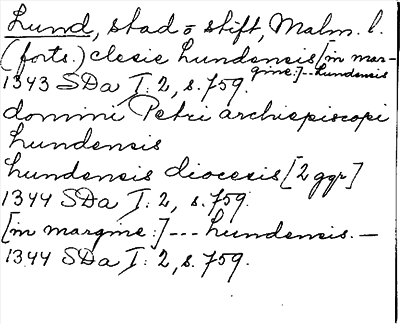 Lund, stad o stift, Malm. l.
(forts.) clesie Lundensis [in mar-
gine:] --- Lundensis
1343 SDa I: 2, s. 759.
domini Petri archiepiscopi
Lundensis
Lundensis diocesis [2 ggr]
1344 SDa I: 2, s. 759.
[in margine:] --- Lundensis. —
1344 SDa I: 2, s. 759.